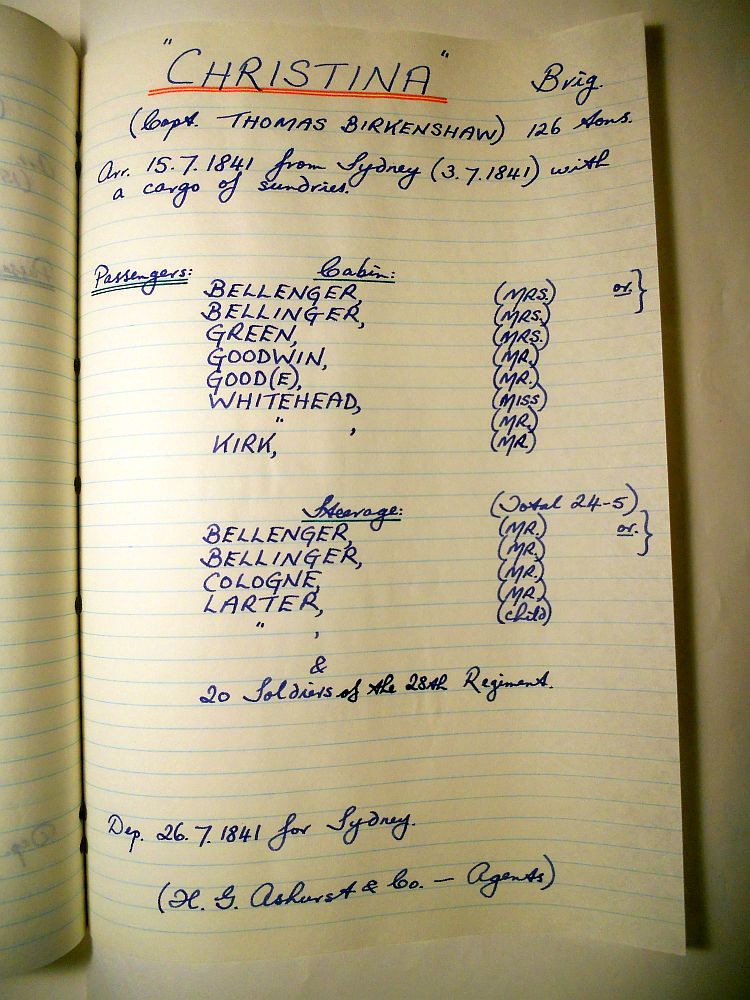 "CHRISTINA" Brig.
(Capt. THOMAS BIRKENSHAW) 126 tons.
Arr. 15.7.1841 from Sydney (3.7.1841) with
a cargo of sundries.
Passengers: Cabin:
BELLENGER, (MRS.) or. }
BELLINGER, (MRS.)
GREEN, (MRS.)
GOODWIN, (MR.)
GOOD(E), (MR.)
WHITEHEAD, (MISS)
" , (MR.)
KIRK, (MR)
Steerage: (Total 24-5)
BELLENGER, (MR.) or. }
BELLINGER, (MR.)
COLOGNE, (MR.)
LARTER, (MR.)
" , (Child)
&
20 Soldiers of the 28th Regiment.
Dep. 26.7.1841 for Sydney.
(H. G. Ashurst & Co. — Agents)